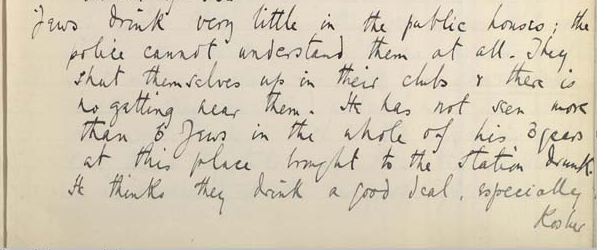 Jews drink very little in the public houses; the
police cannot understand them at all. They
shut themselves up in their clubs & there is
no getting near them. He has not seen more
than 5 Jews in the whole of his 3 years
at this place brought to the station drunk.
He thinks they drink a good deal, especially
Kosher